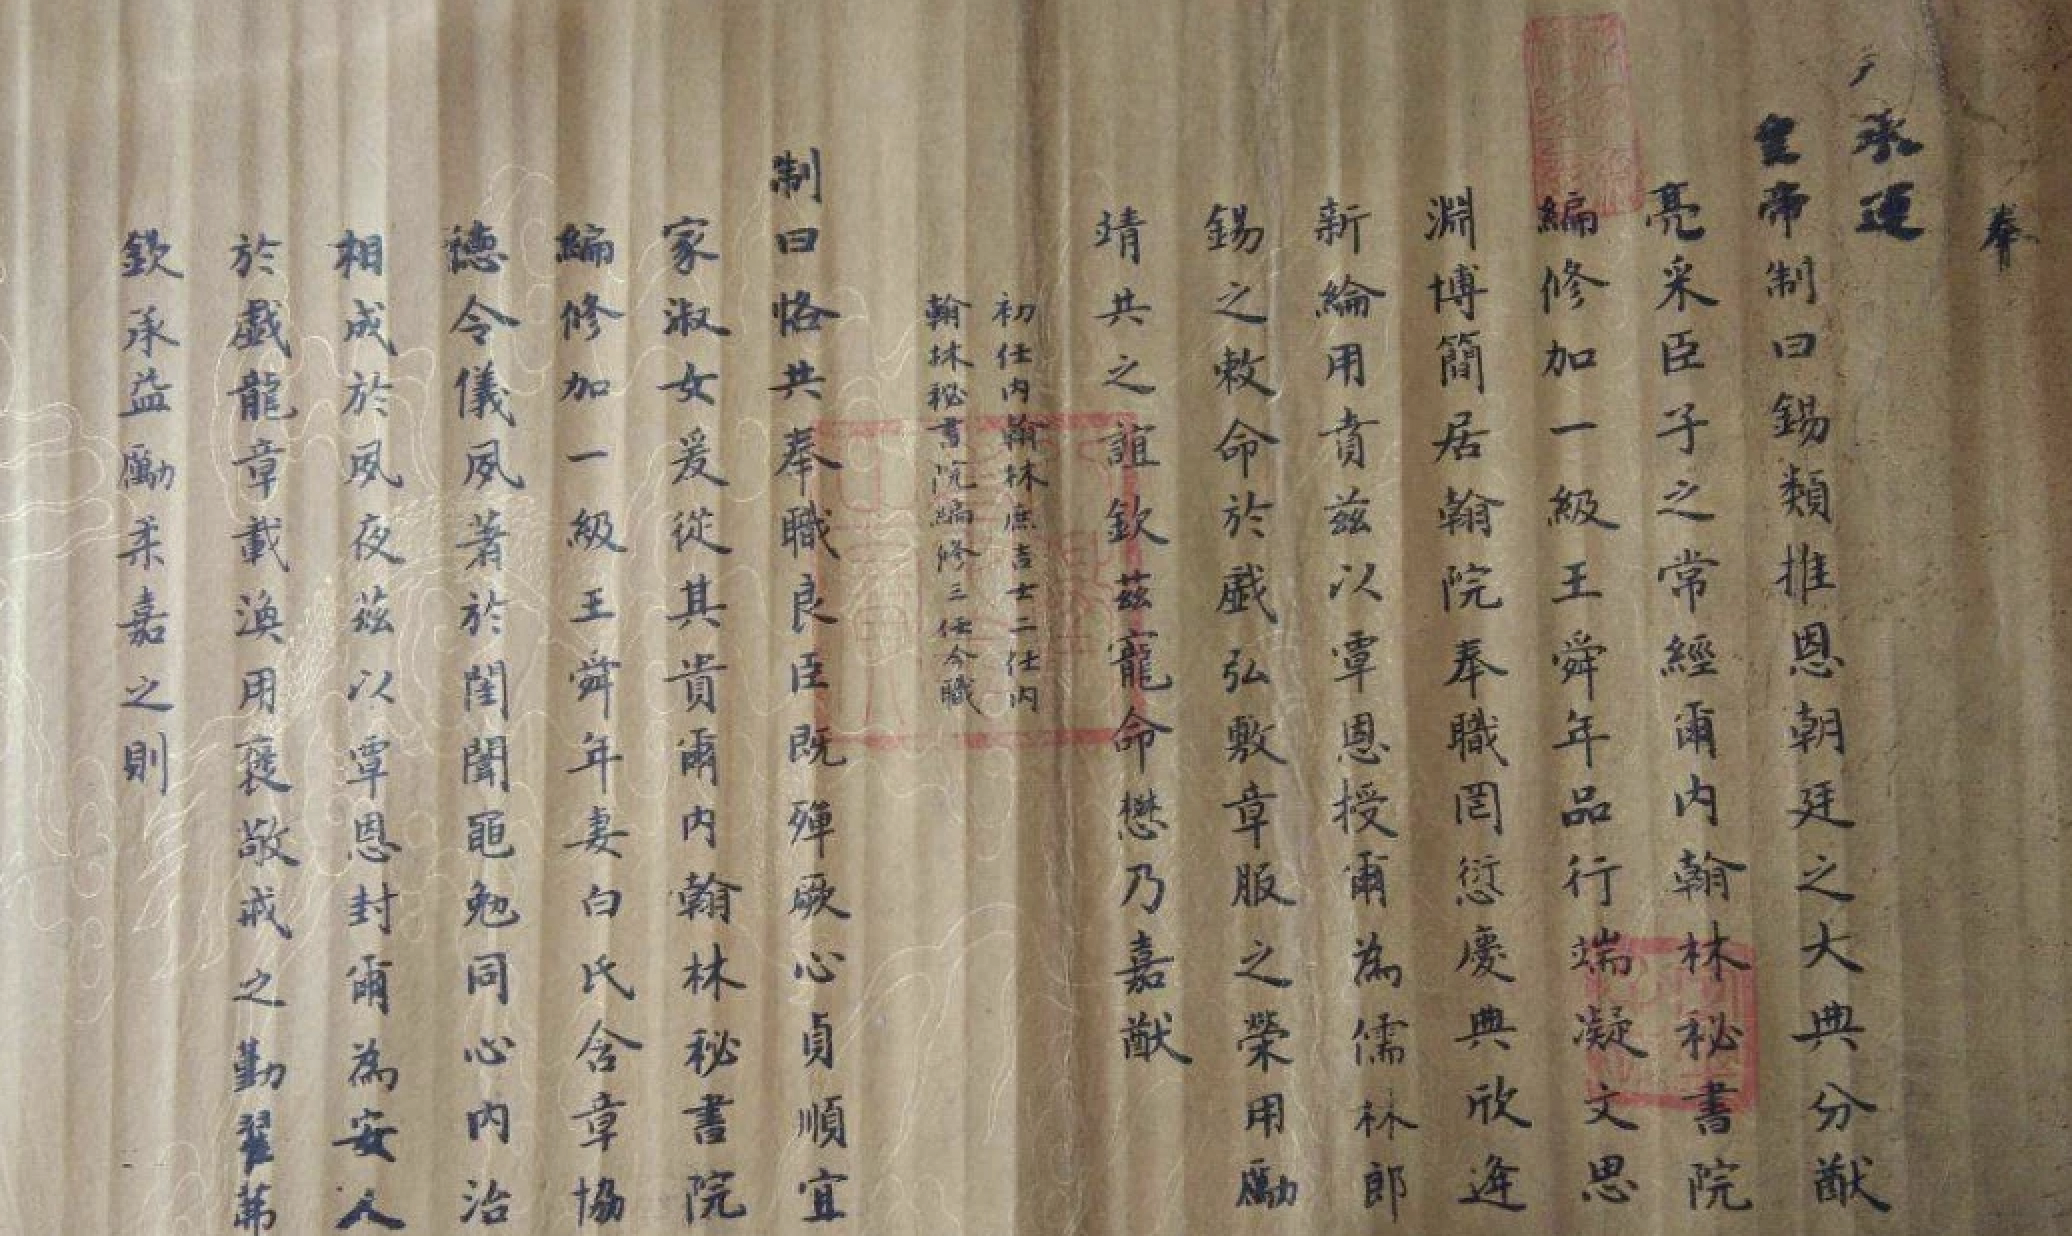 奉
承運
皇帝制曰錫類推恩朝廷之大典分猷
亮采臣子之常經爾內翰林秘書院
編修加一級王舜年品行端凝文思
淵博簡居翰院奉職罔愆慶典欣逢
新綸用賁茲以覃恩授爾為儒林郎
錫之敕命於戲弘敷章服之榮用勵
靖共之誼欽茲寵命懋乃嘉猷
初任內翰林庶吉士二任內
翰林秘書院編修三任今職
制曰恪共奉職良臣既殫厥心貞順宜
家淑女爰從其貴爾內翰林秘書院
編修加一級王舜年妻白氏含章協
德令儀夙著於閨闈黽勉同心內治
相成於夙夜茲以覃恩封爾為安人
於戲龍章載渙用褒敬戒之勤翟茀
欽承益勵柔嘉之則